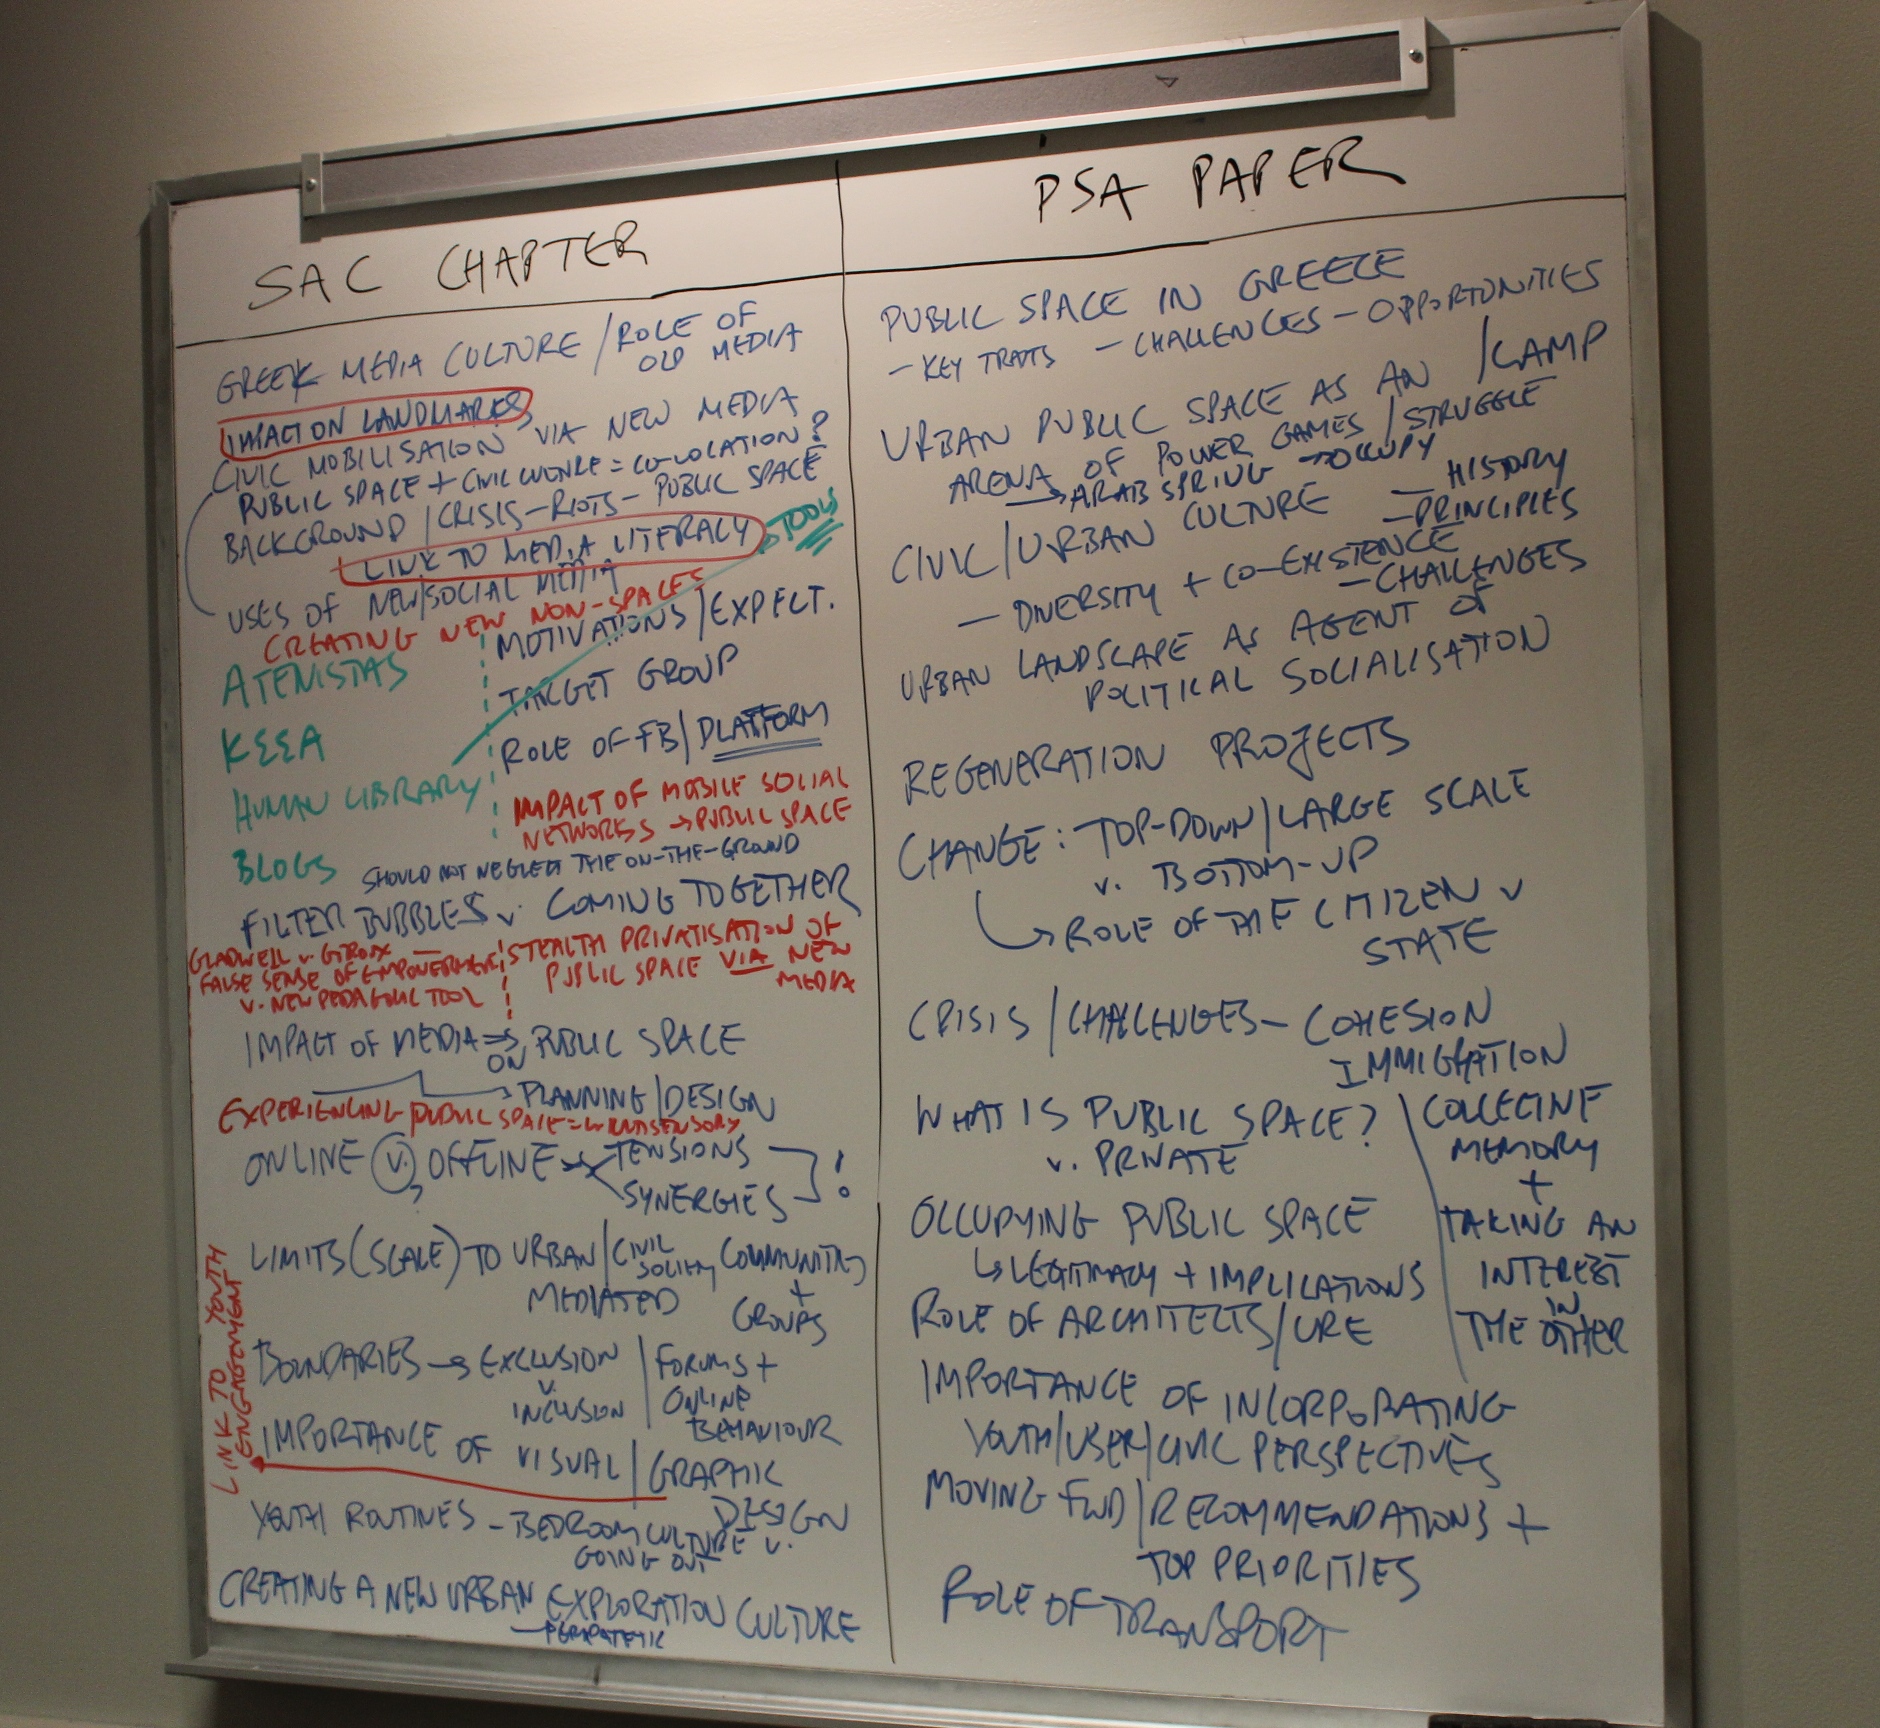 SAC CHAPTER
GREEK MEDIA CULTURE / ROLE OF
OLD MEDIA
IMPACT ON LANDMARKS
CIVIC MOBILISATION VIA NEW MEDIA
PUBLIC SPACE + CIVIC CULTURE = CO-LOCATION?
BACKGROUND / CRISIS - RIOTS - PUBLIC SPACE
LINK TO MEDIA LITERACY
TOOLS
USES OF NEW/SOCIAL MEDIA
CREATING NEW NON-SPACES
ATENISTAS
ΚΣΣΑ
HUMAN LIBRARY
BLOGS
MOTIVATIONS / EXPECT.
TARGET GROUP
ROLE OF FB / PLATFORM
IMPACT OF MOBILE SOCIAL
NETWORKS → PUBLIC SPACE
SHOULD NOT NEGLECT THE ON-THE-GROUND
FILTER BUBBLES v. COMING TOGETHER
GLADWELL v. GIROUX
FALSE SENSE OF EMPOWERMENT
v. NEW PEDAGOGIC TOOL
STEALTH PRIVATISATION OF
PUBLIC SPACE VIA NEW
MEDIA
IMPACT OF MEDIA ⇒ PUBLIC SPACE
ON
→ PLANNING / DESIGN
EXPERIENCING PUBLIC SPACE = MULTISENSORY
ONLINE v. OFFLINE TENSIONS
? SYNERGIES !
LIMITS (SCALE) TO URBAN / CIVIL SOCIETY COMMUNITIES
MEDIATED + GROUPS
BOUNDARIES → EXCLUSION / FORUMS +
v. INCLUSION ONLINE
BEHAVIOUR
LINK TO YOUTH
ENGAGEMENT
IMPORTANCE OF VISUAL / GRAPHIC
DESIGN
YOUTH ROUTINES - BEDROOM CULTURE v.
GOING OUT
CREATING A NEW URBAN EXPLORATION CULTURE
- PERIPATETIC
PSA PAPER
PUBLIC SPACE IN GREECE
- KEY TRAITS - CHALLENGES - OPPORTUNITIES
URBAN PUBLIC SPACE AS AN / CAMP
ARENA OF POWER GAMES / STRUGGLE
→ ARAB SPRING → OCCUPY
CIVIC / URBAN CULTURE - HISTORY
- PRINCIPLES
- DIVERSITY + CO-EXISTENCE
- CHALLENGES
URBAN LANDSCAPE AS AGENT OF
POLITICAL SOCIALISATION
REGENERATION PROJECTS
CHANGE: TOP-DOWN / LARGE SCALE
v. BOTTOM-UP
→ ROLE OF THE CITIZEN v
STATE
CRISIS / CHALLENGES - COHESION
IMMIGRATION
WHAT IS PUBLIC SPACE?
v. PRIVATE
COLLECTIVE
MEMORY
+
TAKING AN
INTEREST
IN
THE OTHER
OCCUPYING PUBLIC SPACE
↳ LEGITIMACY + IMPLICATIONS
ROLE OF ARCHITECTS / URE
IMPORTANCE OF INCORPORATING
YOUTH / USER / CIVIC PERSPECTIVES
MOVING FWD / RECOMMENDATIONS +
TOP PRIORITIES
ROLE OF TRANSPORT